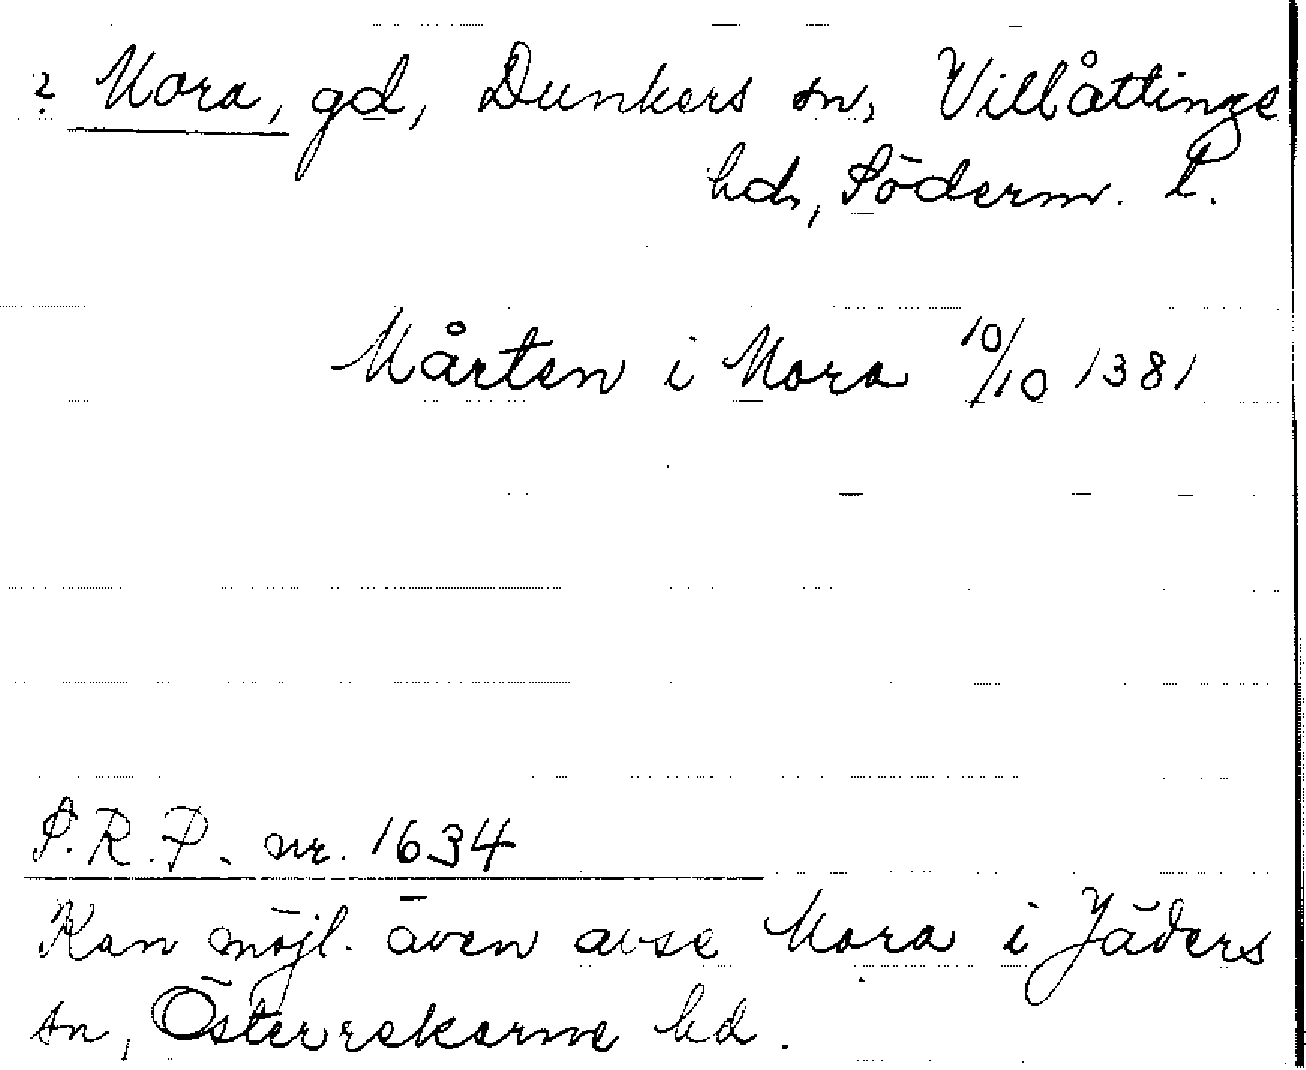 ? Mora, gd, Dunkers sn, Villåttinge
hd, Söderm. l.
Mårten i Mora 10/10 1381
S.R.P. nr. 1634
Kan möjl. även avse Mora i Jäders
sn, Österrekarne hd.